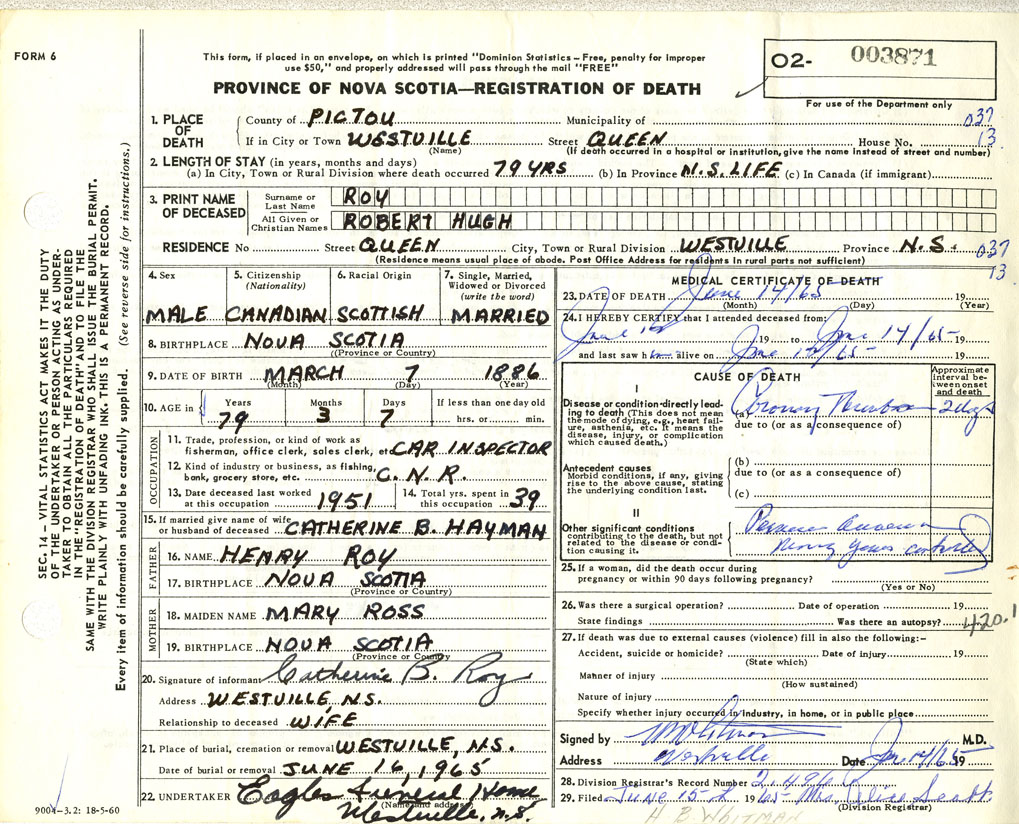 FORM 6
This form, if placed in an envelope, on which is printed "Dominion Statistics – Free, penalty for improper
use $50," and properly addressed will pass through the mail "FREE"
O2- 003871
For use of the Department only
PROVINCE OF NOVA SCOTIA—REGISTRATION OF DEATH
SEC. 14 – VITAL STATISTICS ACT MAKES IT THE DUTY
OF THE UNDERTAKER OR PERSON ACTING AS UNDER-
TAKER TO OBTAIN ALL THE PARTICULARS REQUIRED
IN THE "REGISTRATION OF DEATH" AND TO FILE THE
SAME WITH THE DIVISION REGISTRAR WHO SHALL ISSUE THE BURIAL PERMIT.
WRITE PLAINLY WITH UNFADING INK. THIS IS A PERMANENT RECORD.
Every item of information should be carefully supplied. (See reverse side for instructions.)
1. PLACE OF DEATH
County of PICTOU Municipality of 037
If in City or Town WESTVILLE Street QUEEN House No. 13
(Name) (If death occurred in a hospital or institution, give the name instead of street and number)
2. LENGTH OF STAY (in years, months and days)
(a) In City, Town or Rural Division where death occurred 79 YRS (b) In Province N.S. LIFE (c) In Canada (if immigrant)
3. PRINT NAME OF DECEASED
Surname or Last Name ROY
All Given or Christian Names ROBERT HUGH
RESIDENCE No Street QUEEN City, Town or Rural Division WESTVILLE Province N.S. 037
(Residence means usual place of abode. Post Office Address for residents in rural parts not sufficient) 13
4. Sex
MALE
5. Citizenship
(Nationality)
CANADIAN
6. Racial Origin
SCOTTISH
7. Single, Married,
Widowed or Divorced
(write the word)
MARRIED
8. BIRTHPLACE NOVA SCOTIA
(Province or Country)
9. DATE OF BIRTH MARCH 7 1886
(Month) (Day) (Year)
10. AGE in Years Months Days If less than one day old
79 3 7 hrs. or min.
OCCUPATION
11. Trade, profession, or kind of work as
fisherman, office clerk, sales clerk, etc CAR INSPECTOR
12. Kind of industry or business, as fishing,
bank, grocery store, etc. C.N.R.
13. Date deceased last worked
at this occupation 1951
14. Total yrs. spent in
this occupation 39
15. If married give name of wife
or husband of deceased CATHERINE B. HAYMAN
FATHER
16. NAME HENRY ROY
17. BIRTHPLACE NOVA SCOTIA
(Province or Country)
MOTHER
18. MAIDEN NAME MARY ROSS
19. BIRTHPLACE NOVA SCOTIA
(Province or Country)
20. Signature of informant Catherine B. Roy
Address WESTVILLE N.S.
Relationship to deceased WIFE
21. Place of burial, cremation or removal WESTVILLE, N.S.
Date of burial or removal JUNE 16, 1965
22. UNDERTAKER Eagles Funeral Home
(Name and address)
Westville, N.S.
9004–3.2: 18-5-60
MEDICAL CERTIFICATE OF DEATH
23. DATE OF DEATH June 14/65 19
(Month) (Day) (Year)
24. I HEREBY CERTIFY that I attended deceased from:
June 19 to June 14/65 19
and last saw him alive on June 19
CAUSE OF DEATH
Approximate
interval be-
tween onset
and death
I
Disease or condition directly lead-
ing to death (This does not mean
the mode of dying, e.g., heart fail-
ure, asthenia, etc. It means the
disease, injury, or complication
which caused death.)
(a) Coronary 2 days
due to (or as a consequence of)
Antecedent causes
Morbid conditions, if any, giving
rise to the above cause, stating
the underlying condition last.
(b)
due to (or as a consequence of)
(c)
II
Other significant conditions
contributing to the death, but not
related to the disease or condi-
tion causing it.
many years
25. If a woman, did the death occur during
pregnancy or within 90 days following pregnancy?
(Yes or No)
26. Was there a surgical operation? Date of operation 19
State findings Was there an autopsy? 420.1
27. If death was due to external causes (violence) fill in also the following:–
Accident, suicide or homicide? Date of injury 19
(State which)
Manner of injury
(How sustained)
Nature of injury
Specify whether injury occurred in industry, in home, or in public place
Signed by M.D.
Address Westville Date 14/65 19
28. Division Registrar's Record Number
29. Filed June 15 1965 Mrs.
(Division Registrar)
H B WHITMAN